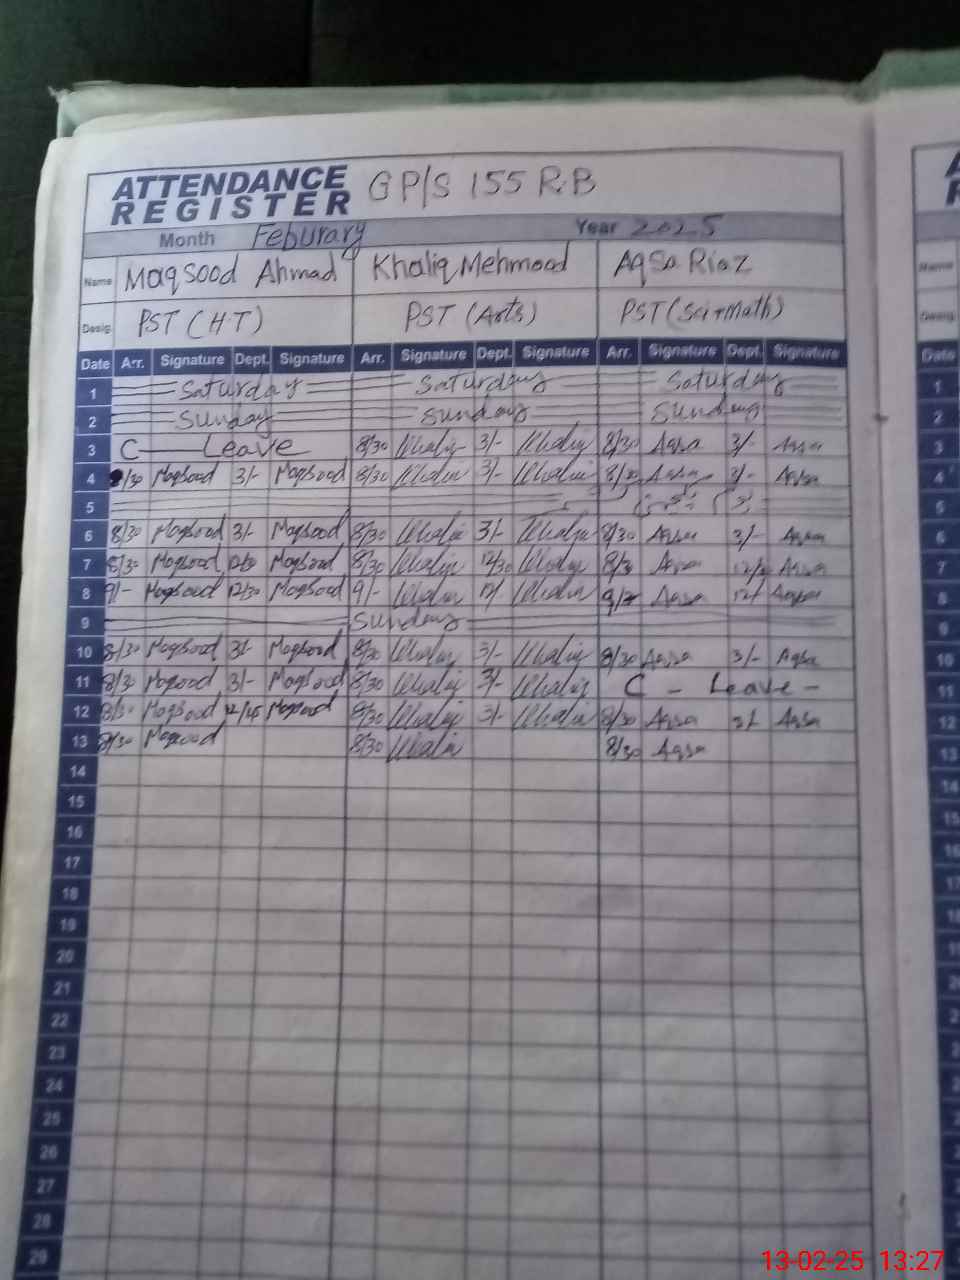 ATTENDANCE REGISTER GP/S 155 R.B
Month Feburary Year 2025
Name Maqsood Ahmad Khaliq Mehmood Aqsa Riaz
Desig. PST (H.T) PST (Arts) PST (Sci+Math)
Date Arr. Signature Dept. Signature Arr. Signature Dept. Signature Arr. Signature Dept. Signature
1 Saturday Saturday Saturday
2 Sunday Sunday Sunday
3 C Leave 8/30 Khaliq 3/- Khaliq 8/30 Aqsa 3/- Aqsa
4 /30 Maqsood 3/- Maqsood 8/30 Khaliq 3/- Khaliq 8/30 Aqsa 3/- Aqsa
5
6 8/30 Maqsood 3/- Maqsood 8/30 Khaliq 3/- Khaliq 8/30 Aqsa 3/- Aqsa
7 8/30 Maqsood 12/30 Maqsood 8/30 Khaliq 12/30 Khaliq 8/30 Aqsa Aqsa
8 9/- Maqsood 12/30 Maqsood 9/- Khaliq 12/ Khaliq 9/- Aqsa 12/ Aqsa
9 Sunday
10 8/30 Maqsood 3/- Maqsood 8/30 Khaliq 3/- Khaliq 8/30 Aqsa 3/- Aqsa
11 8/30 Maqsood 3/- Maqsood 8/30 Khaliq 3/- Khaliq C - Leave -
12 8/30 Maqsood 12/45 Maqsood 8/30 Khaliq 3/- Khaliq 8/30 Aqsa 3/ Aqsa
13 8/30 Maqsood 8/30 Khaliq 8/30 Aqsa
14
15
16
17
18
19
20
21
22
23
24
25
26
27
28
29
Name
Desig.
Date
1
2
3
4
5
6
7
8
9
10
11
12
13
14
15
16
17
18
19
13-02-25 13:27